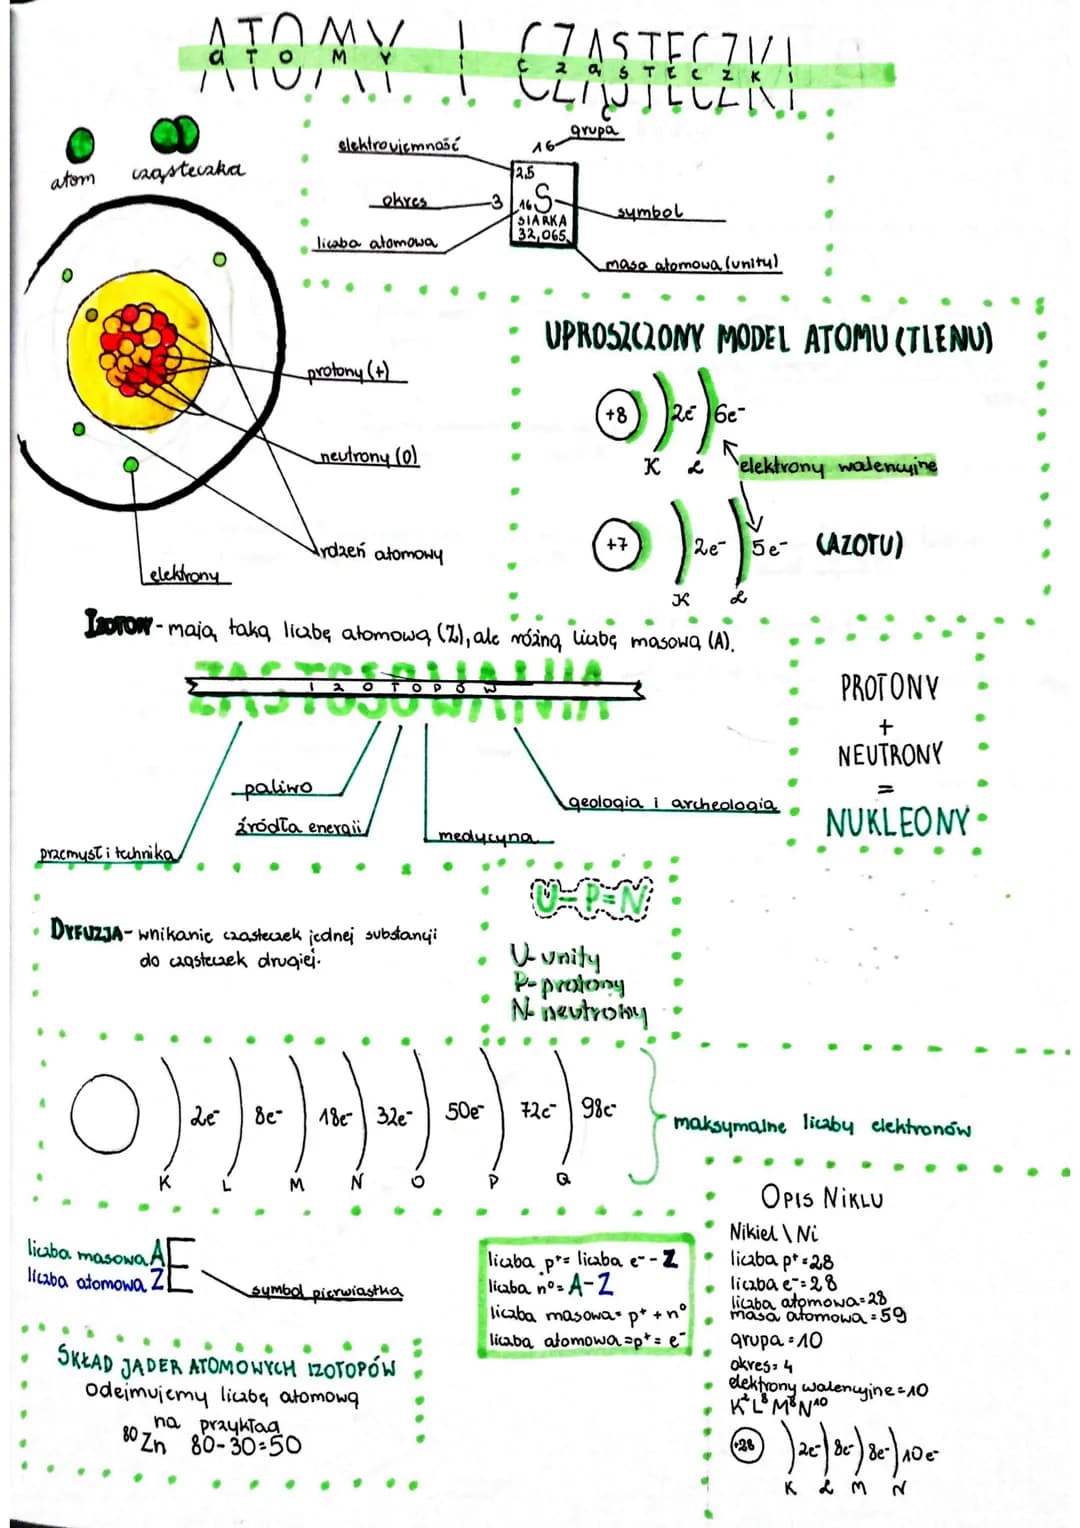 ATOMY I CZĄSTECZKI
aTOMY I CząSTECZKI
atom
cząsteczka
elektroujemność
16
grupa
2,5
okres
3
16
S
SIARKA
32,065
symbol
liczba atomowa
masa atomowa (unity)
protony (+)
neutrony (0)
rdzeń atomowy
elektrony
UPROSZCZONY MODEL ATOMU (TLENU)
+8
2e⁻
6e⁻
K L
elektrony walencyjne
+7
2e⁻
5e⁻
(AZOTU)
K L
IZOTOPY - mają taką liczbę atomową (Z), ale różną liczbę masową (A).
ZASTOSOWANIA
IZOTOPÓW
paliwo
źródła energii
przemysł i technika
medycyna
geologia i archeologia
PROTONY
+
NEUTRONY
=
NUKLEONY
DYFUZJA - wnikanie cząsteczek jednej substancji
do cząsteczek drugiej.
U-P=N
U- unity
P- protony
N- neutrony
2e⁻ 8e⁻ 18e⁻ 32e⁻ 50e⁻ 72e⁻ 98e⁻
K L M N O P Q
maksymalne liczby elektronów
liczba masowa A
liczba atomowa Z
E
symbol pierwiastka
liczba p⁺= liczba e⁻ - Z
liczba n⁰= A-Z
liczba masowa= p⁺ + n⁰
liczba atomowa =p⁺= e⁻
SKŁAD JĄDER ATOMOWYCH IZOTOPÓW
Odejmujemy liczbę atomową
na przykład
⁸⁰Zn 80-30=50
OPIS NIKLU
Nikiel \ Ni
liczba p⁺=28
liczba e⁻=28
liczba atomowa=28
masa atomowa =59
grupa =10
okres= 4
elektrony walencyjne =10
K²L⁸M⁸N¹⁰
+28
2e⁻ 8e⁻ 8e⁻ 10e⁻
K L M N